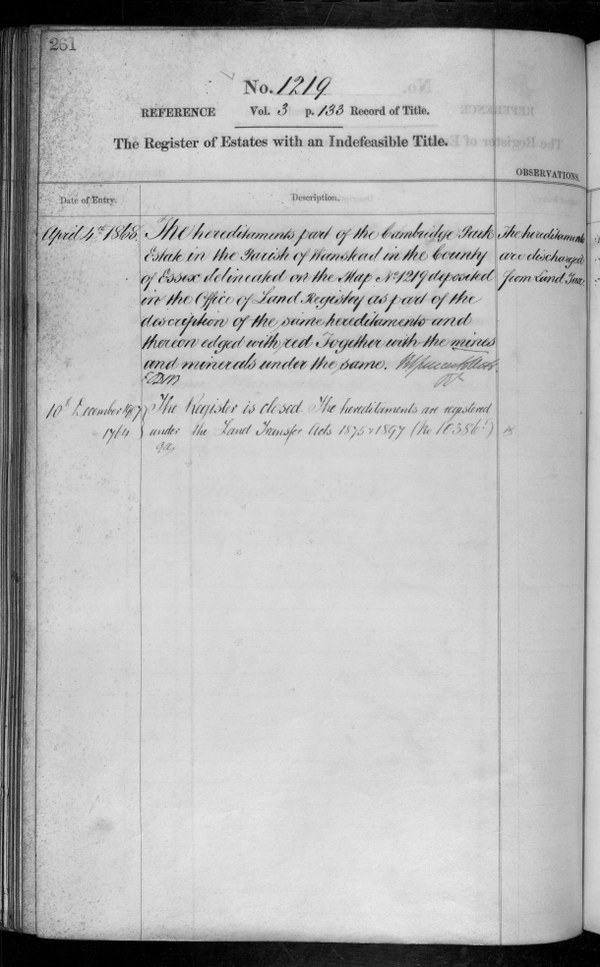 261
No. 1219
REFERENCE Vol. 3 p. 133 Record of Title.
The Register of Estates with an Indefeasible Title.
OBSERVATIONS.
Date of Entry.
Description.
April 4th 1868.
The hereditaments part of the Cambridge Park
Estate in the Parish of Wanstead in the County
of Essex delineated on the Map No 1219 deposited
in the Office of Land Registry as part of the
description of the same hereditaments and
thereon edged with red Together with the mines
and minerals under the same.
The hereditaments
are discharged
from Land Tax.
10th December 1907
1764
The Register is closed. The hereditaments are registered
under the Land Transfer Acts 1875 & 1897